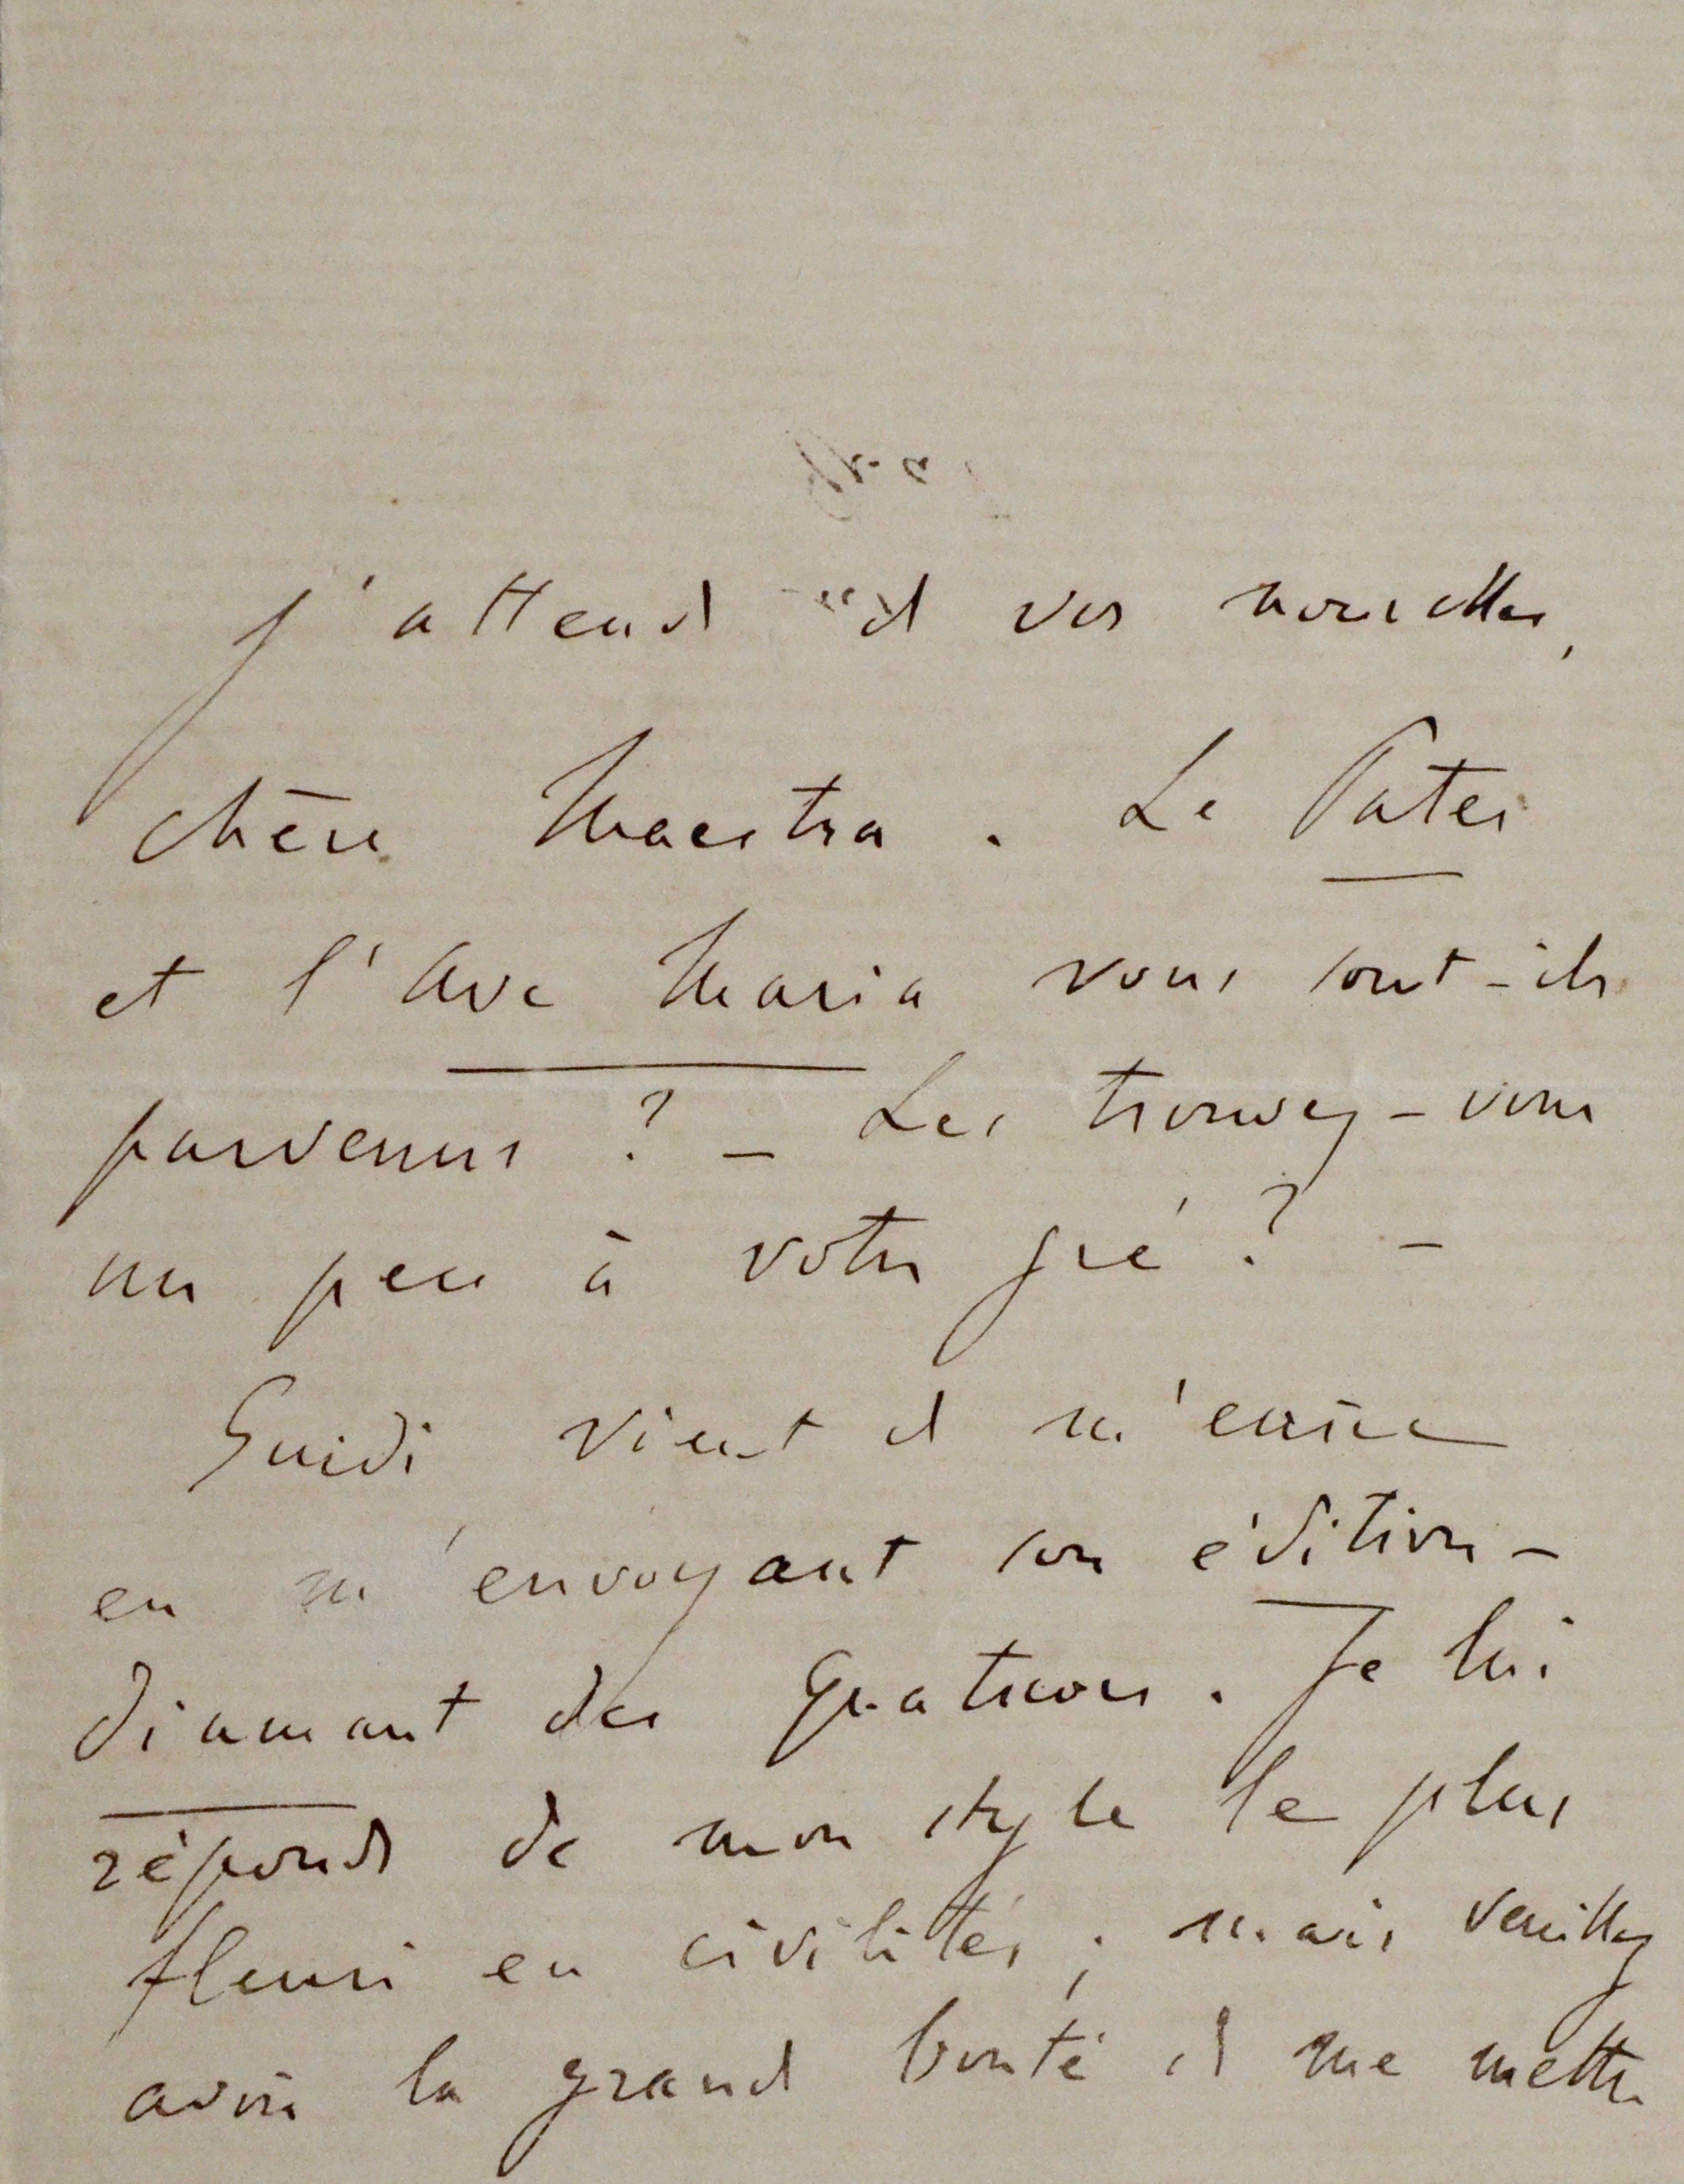 J'attends d vos nouvelles,
chère Maestra. Le Pater
et l'Ave Maria vous sont-ils
parvenus ? — Les trouvez-vous
un peu à votre gré ? —
Guidi vient d m'écrire
en m'envoyant son édition-
diamant des Quatuors. Je lui
réponds de mon style le plus
fleuri en civilités ; mais veuillez
avoir la grand bonté d me mettre